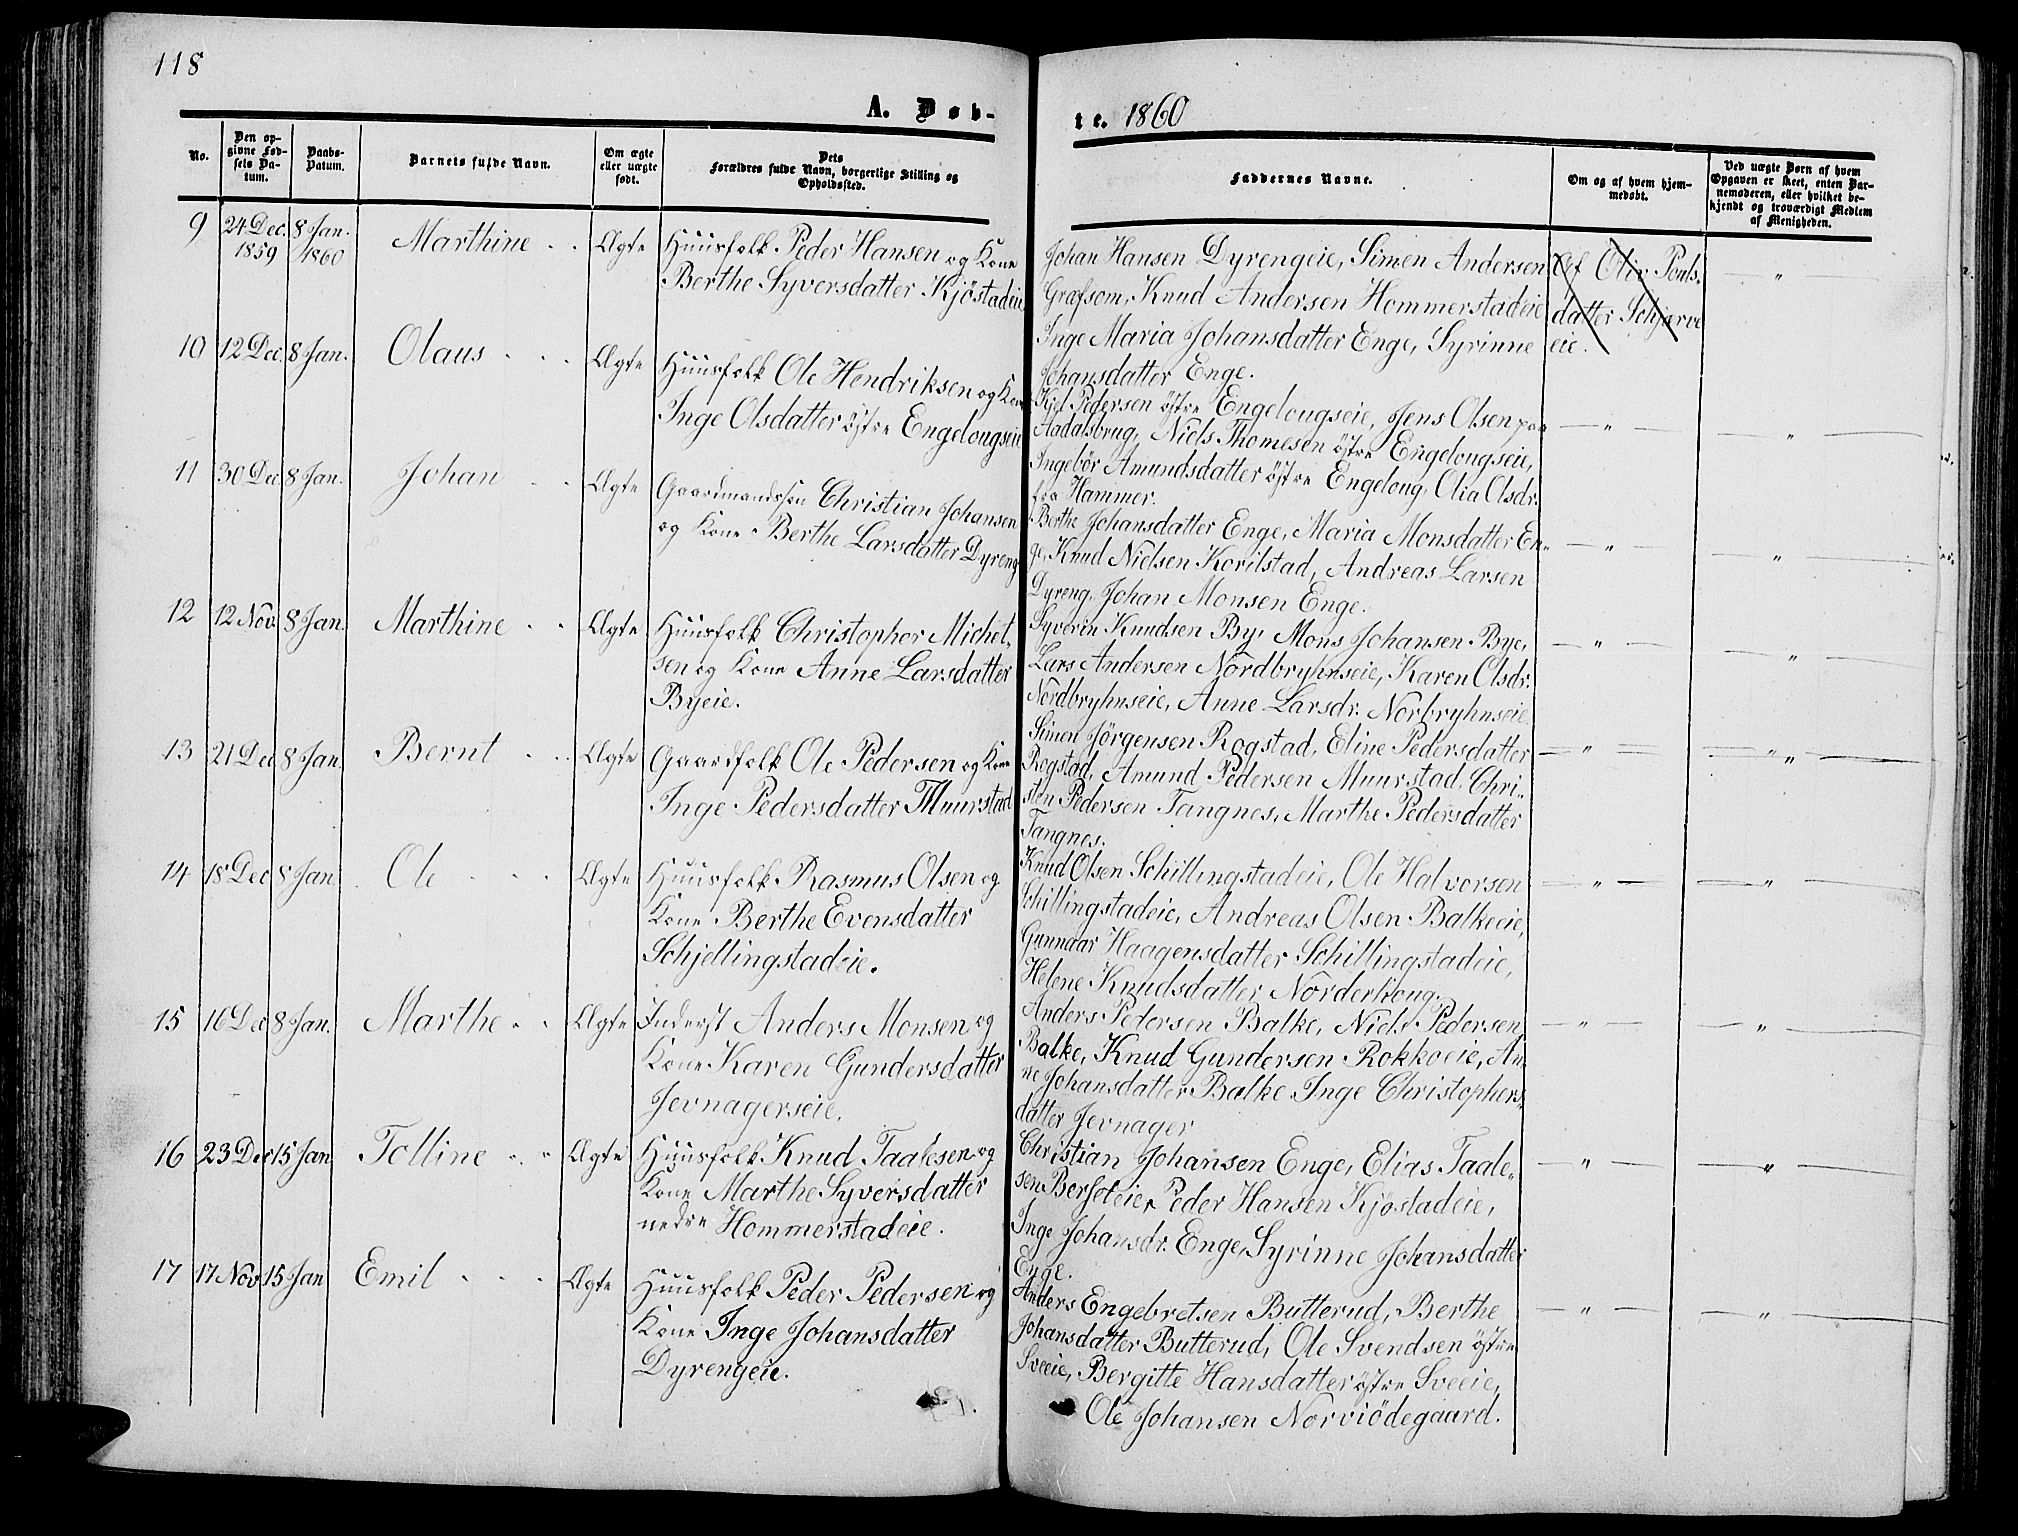 118
A. Døb-
te. 1860
No.
Den op-
givne Fød-
sels Da-
tum.
Daabs-
Datum.
Barnets fulde Navn.
Om ægte
eller uægte
født.
Dets
Forældres fulde Navn, borgerlige Stilling og
Opholdssted.
Faddernes Navne.
Om og af hvem hjem-
medøbt.
Ved uægte Børn af hvem
Opgaven er skeet, enten Bar-
nemoderen, eller hvilket be-
kjendt og troværdigt Medlem
af Menigheden.
9 24 Dec. 8 Jan. Marthine Ægte Huusfolk Peder Hansen og Kone
1859 1860
Berthe Syversdatter Kjöstadeie
Johan Hansen Dyrengeie, Simen Andersen
Græfsom, Knud Andersen Hommerstadeie
Inge Maria Johansdatter Enge, Syrinne
Johansdatter Enge.
Af Olia Pouls-
datter Schjerve
eie.
"
10 12 Dec 8 Jan. Olaus Ægte Huusfolk Ole Hendriksen og Kone
Inge Olsdatter östre Engelougseie
Kjel Pedersen östre Engelougseie, Jens Olsen paa
Aadalsbrug, Niels Thomesen östre Engelougseie,
Ingebör Amundsdatter östre Engeloug, Olia Olsdr.
fra Hammer.
" "
11 30 Dec 8 Jan. Johan Ægte Gaardmandssön Christian Johansen
og Kone Berthe Larsdatter Dyreng
Berthe Johansdatter Enge, Maria Monsdatter En-
ge, Knud Nielsen Korilstad, Andreas Larsen
Dyreng, Johan Monsen Enge.
" "
12 12 Nov. 8 Jan. Marthine Ægte Huusfolk Christopher Michel-
sen og Kone Anne Larsdatter
Byeie.
Syverin Knudsen By, Mons Johansen Bye,
Lars Andersen Nordbryhnseie, Karen Olsdr.
Nordbryhnseie, Anne Larsdr. Norbryhnseie.
" "
13 21 Dec 8 Jan. Bernt Ægte Gaardfolk Ole Pedersen og Kone
Inge Pedersdatter Muurstad
Simon Jörgensen Rogstad, Eline Pedersdatter
Rogstad, Amund Pedersen Muurstad, Chri-
sten Pedersen Tangnes, Marthe Pedersdatter
Tangnes.
" "
14 18 Dec 8 Jan. Ole Ægte Huusfolk Rasmus Olsen og
Kone Berthe Evensdatter
Schjellingstadeie.
Knud Olsen Schillingstadeie, Ole Halvorsen
Schillingstadeie, Andreas Olsen Balkeeie,
Gunnaar Haagensdatter Schillingstadeie,
Helene Knudsdatter Norderhoug.
" "
15 16 Dec 8 Jan. Marthe Ægte Inderst Anders Monsen og
Kone Karen Gundersdatter
Jevnagerseie.
Anders Pedersen Balke, Niels Pedersen
Balke, Knud Gundersen Rokkoeie, An-
ne Johansdatter Balke, Inge Christophers-
datter Jevnager
" "
16 23 Dec 15 Jan Tolline Ægte Huusfolk Knud Taalesen og
Kone Marthe Syversdatter
nedre Hommerstadeie.
Christian Johansen Enge, Elias Taale-
sen Berseteie, Peder Hansen Kjöstadeie,
Inge Johansdr. Enge, Syrinne Johansdatter
Enge.
" "
17 17 Nov 15 Jan Emil Ægte Huusfolk Peder Pedersen og
Kone Inge Johansdatter
Dyrengeie.
Anders Engebretsen Butterud, Berthe
Johansdatter Butterud, Ole Svendsen östre
Sveeie, Bergitte Hansdatter östre Sveeie,
Ole Johansen Norviödegaard.
" "